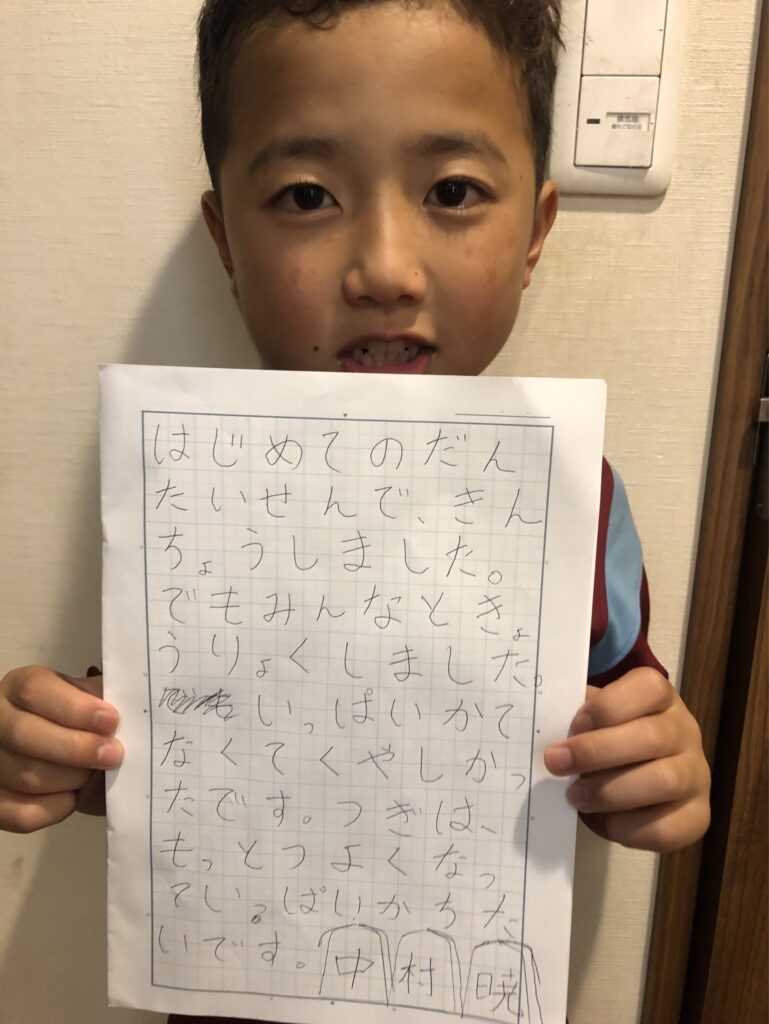 はじめてのだん
たいせんで、きん
ちょうしました。
でもみんなときょ
うりょくしました。
いっぱいかて
なくてくやしかっ
たです。つぎは、
もっとつよくなっ
ていっぱいかちた
いです。中村暁